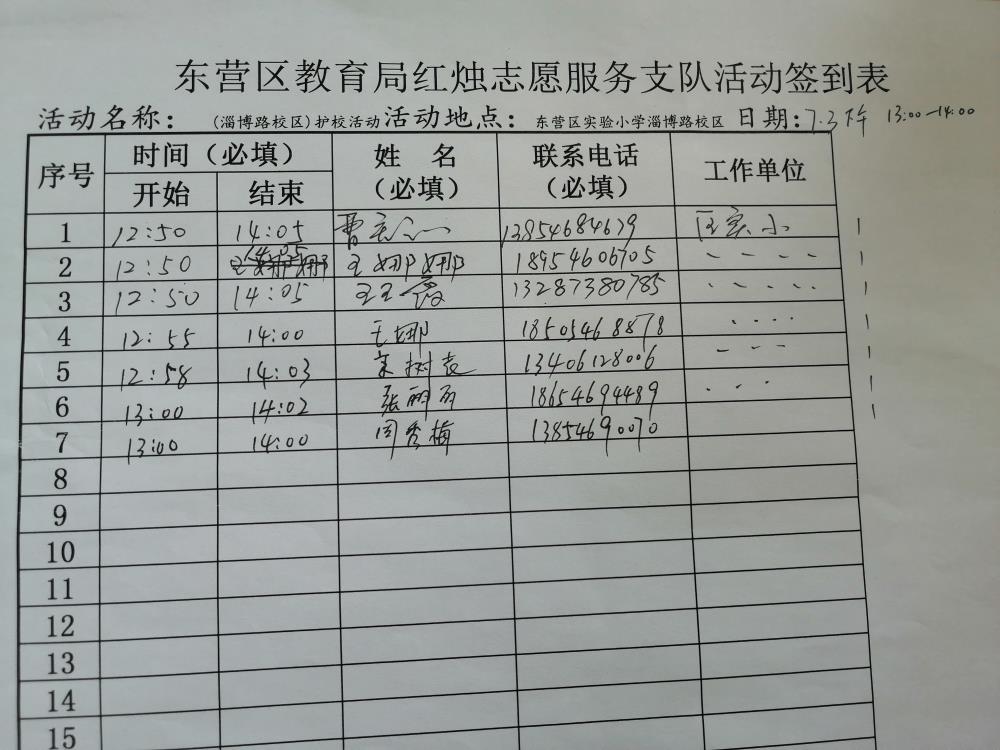 东营区教育局红烛志愿服务支队活动签到表
活动名称：（淄博路校区）护校活动 活动地点：东营区实验小学淄博路校区 日期：7.3下午 13:00-14:00
序号 时间（必填） 姓 名（必填） 联系电话（必填） 工作单位
开始 结束
1 12:50 14:05 13854684679 区实小 1
2 12:50 14:05 王娜娜 18954606705 1
3 12:50 14:05 王玉霞 13287380785 1
4 12:55 14:00 王娜 18505468878 1
5 12:58 14:03 宋树表 13406128006 1
6 13:00 14:02 张丽丽 18654694489 1
7 13:00 14:00 周秀梅 13854690070 1
8
9
10
11
12
13
14
15